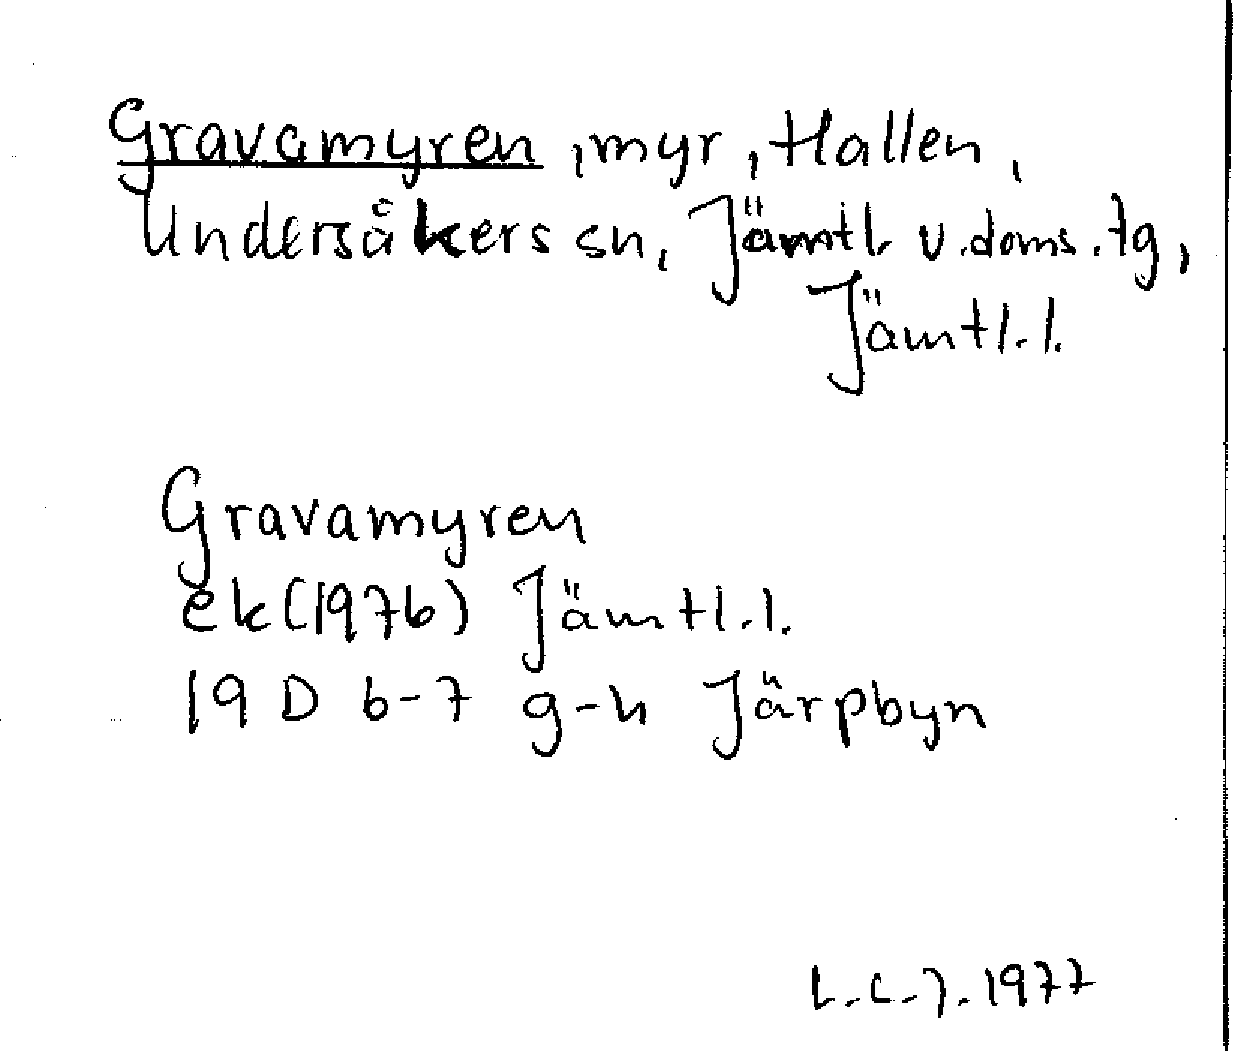 Gravamyren, myr, Hallen,
Undersåkers sn, Jämtl. v. doms. tg,
Jämtl. l.
Gravamyren
ek (1976) Jämtl. l.
19 D 6-7 g-h Järpbyn
L. C. J. 1977